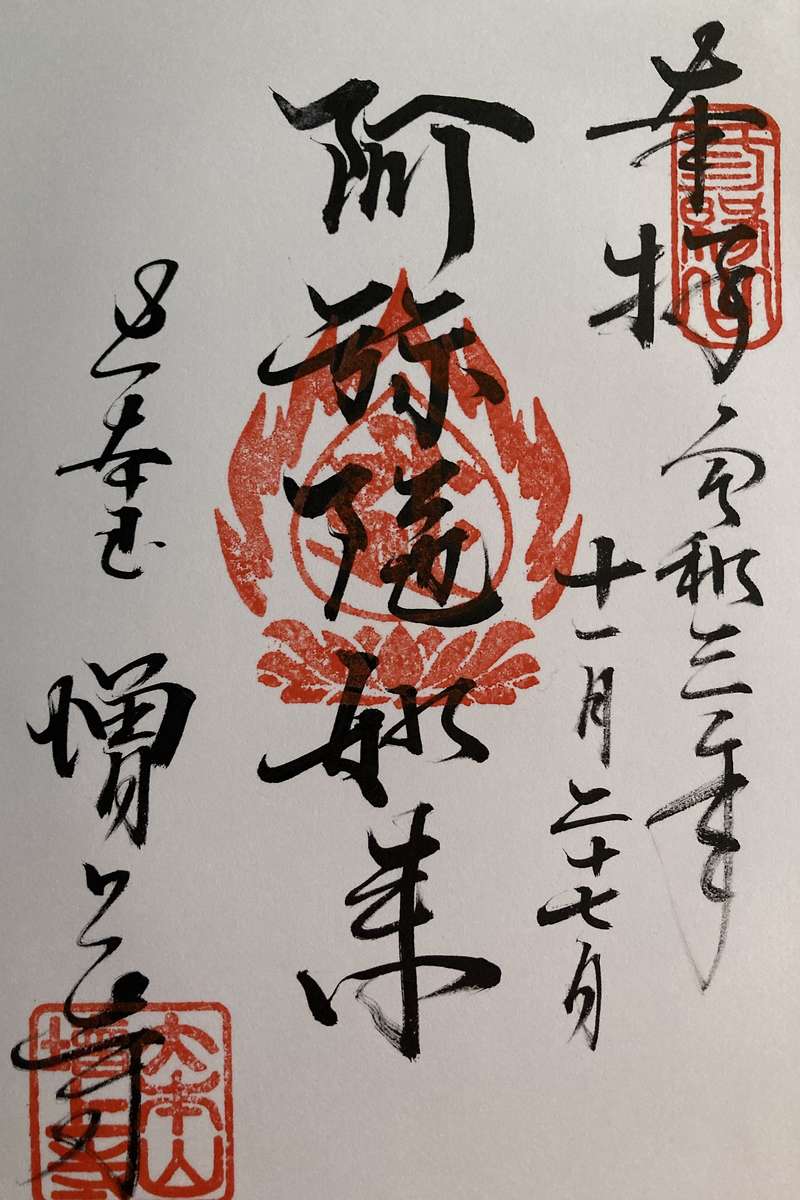 奉拝
令和三年
十一月二十七日
阿弥陀如来
増上寺
大本山
増上寺